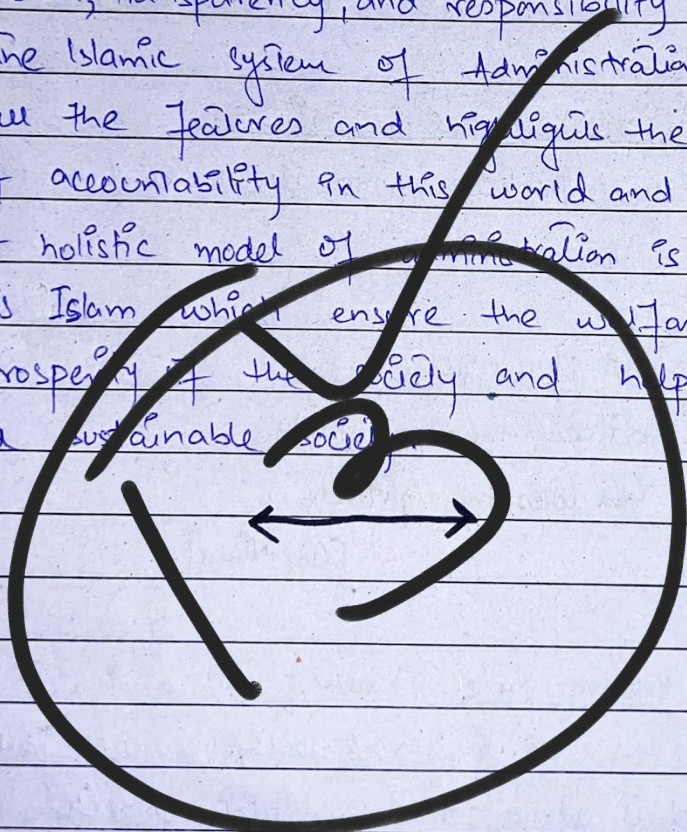 , and responsibility
Islamic system of Administratio
the features and highlights the
accountability in this world and
holistic model of administration is
Islam which ensure the welfa
rosperity of the society and help
sustainable society.
13